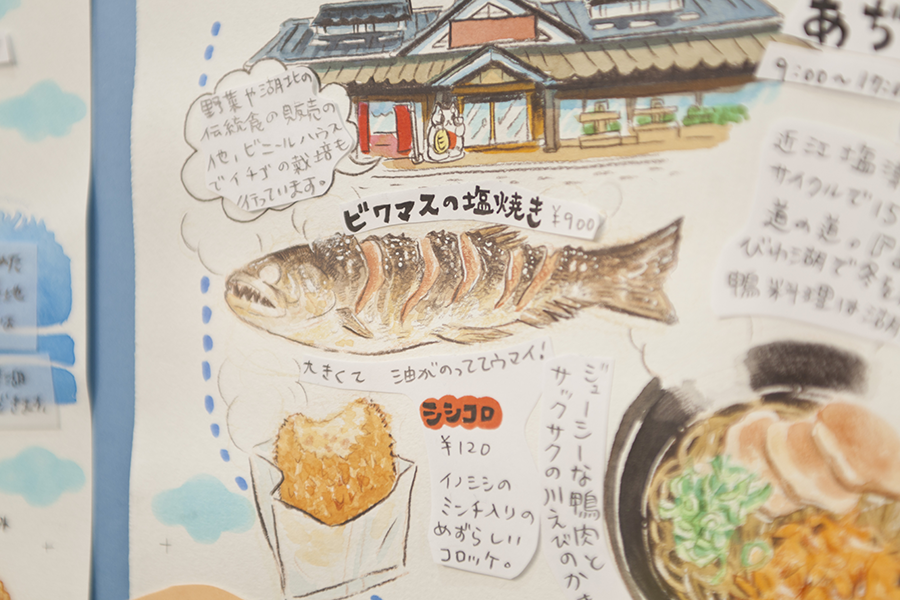 あぢ
9:00〜17:
野菜や湖北の
伝統食の販売の
他、ビニールハウス
でイチゴの栽培も
行っています。
近江塩津
サイクルで15
道の道。『
びわ湖で冬を
鴨料理は湖
ビワマスの塩焼き ¥900
大きくて 油がのっててウマイ!
シシコロ
¥120
イノシシの
ミンチ入りの
めずらしい
コロッケ。
ジューシーな鴨肉と
サックサクの川えびのかき